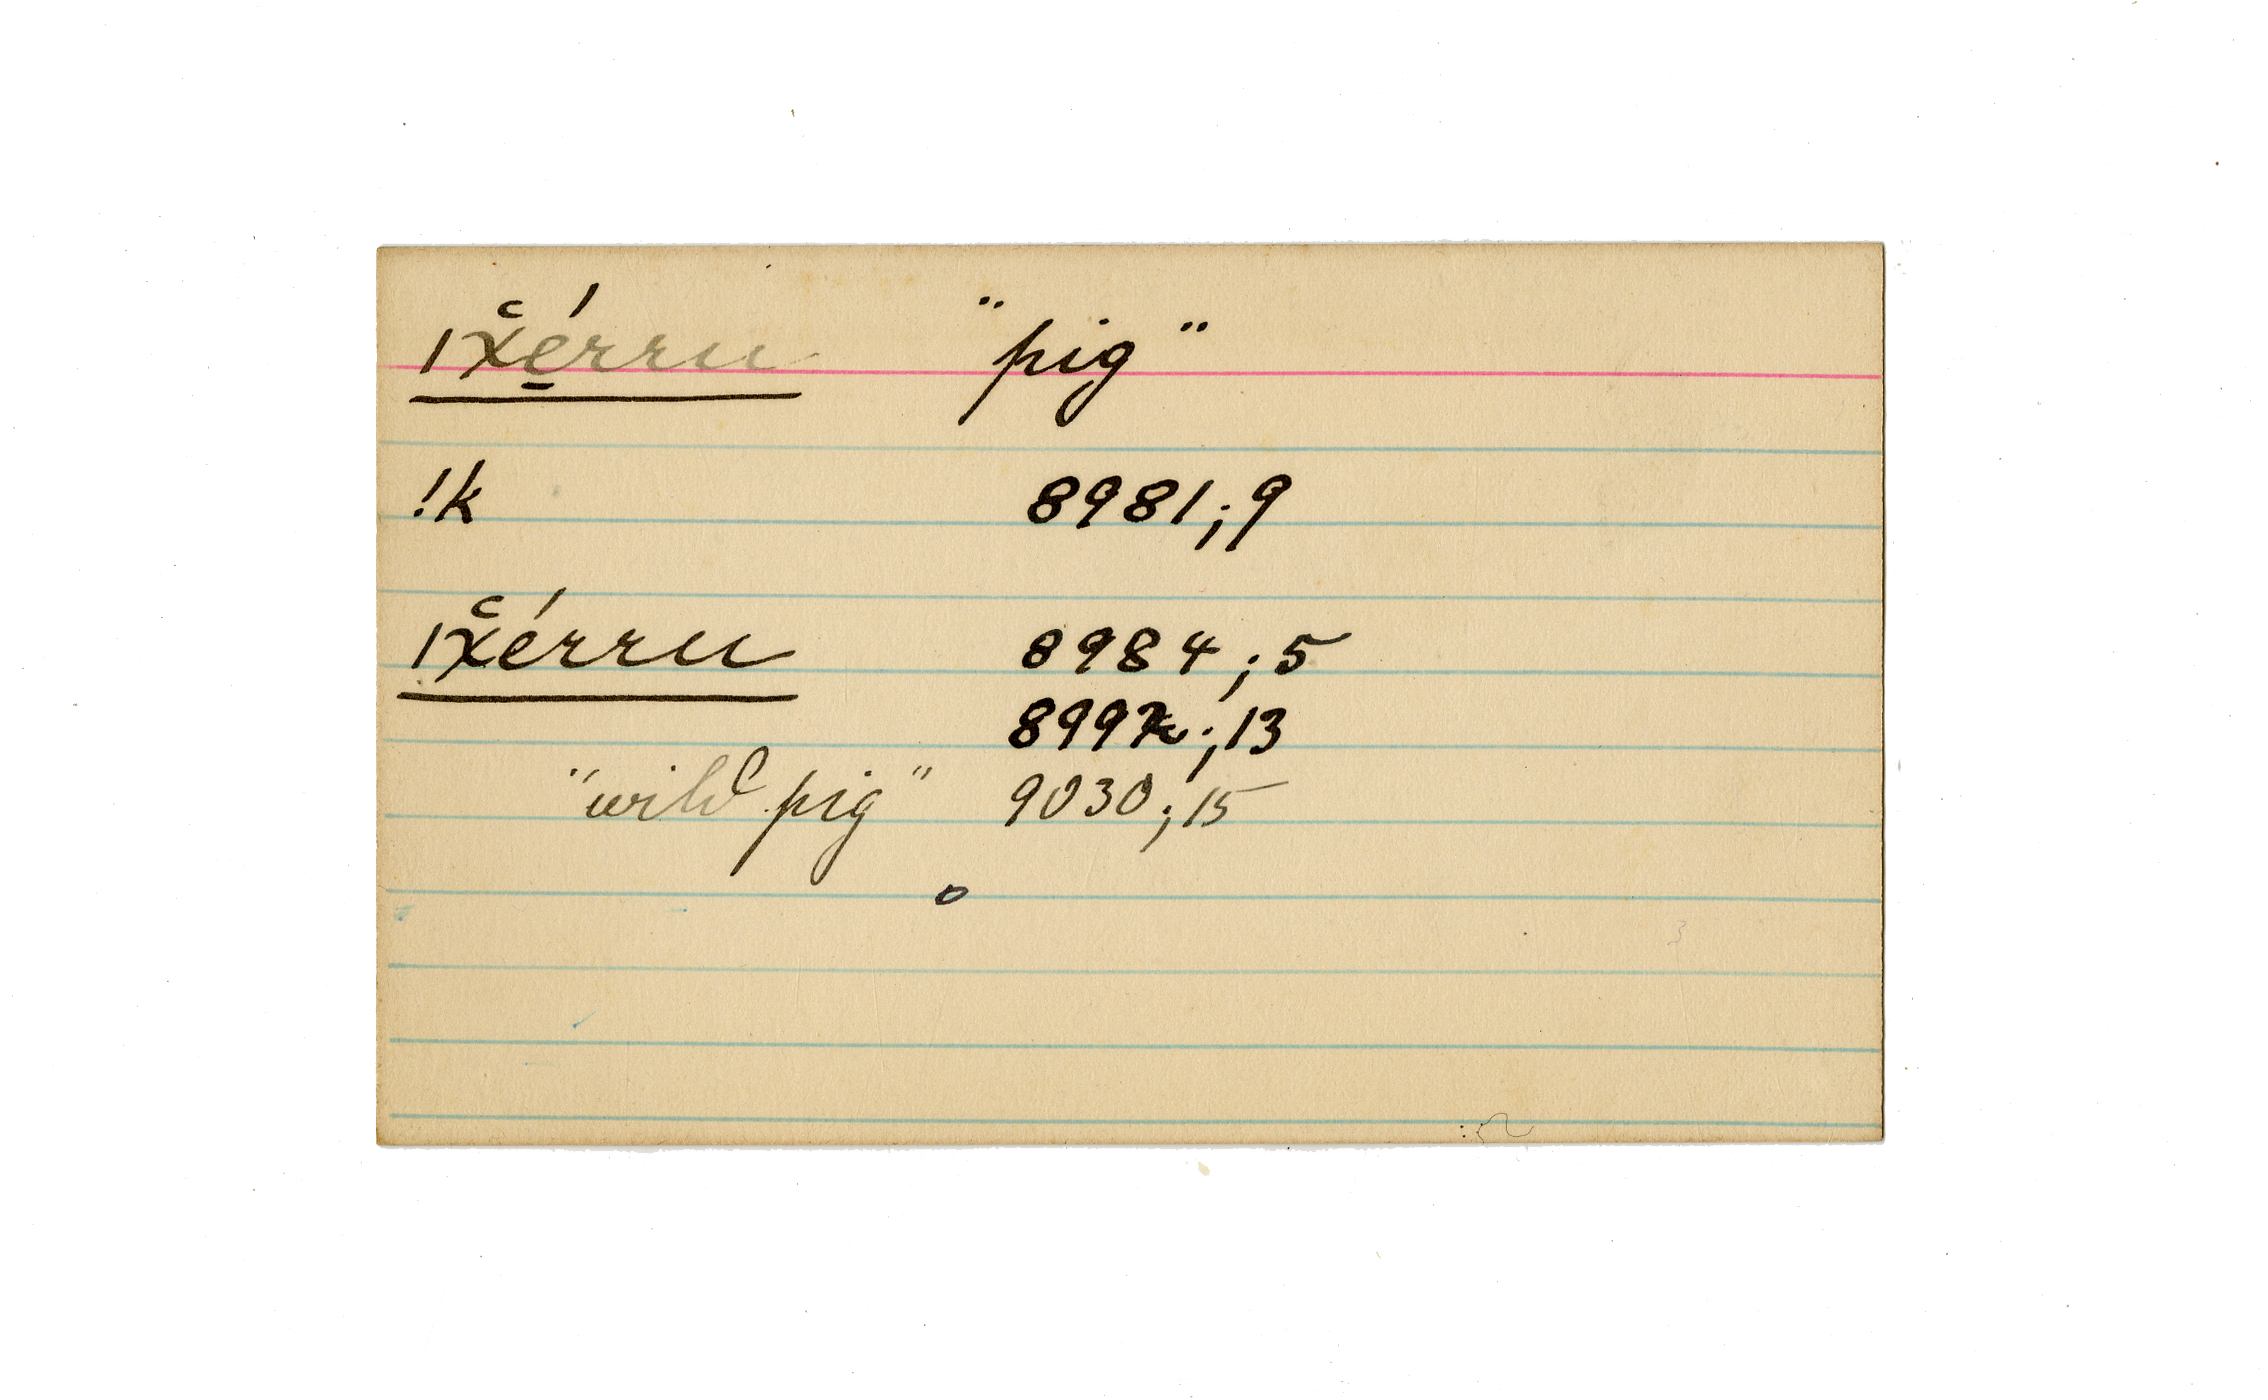 ǀx̆érru "pig"
!k 8981;9
ǀx̆érru 8984;5
8992;13
"wild pig" 9030;15